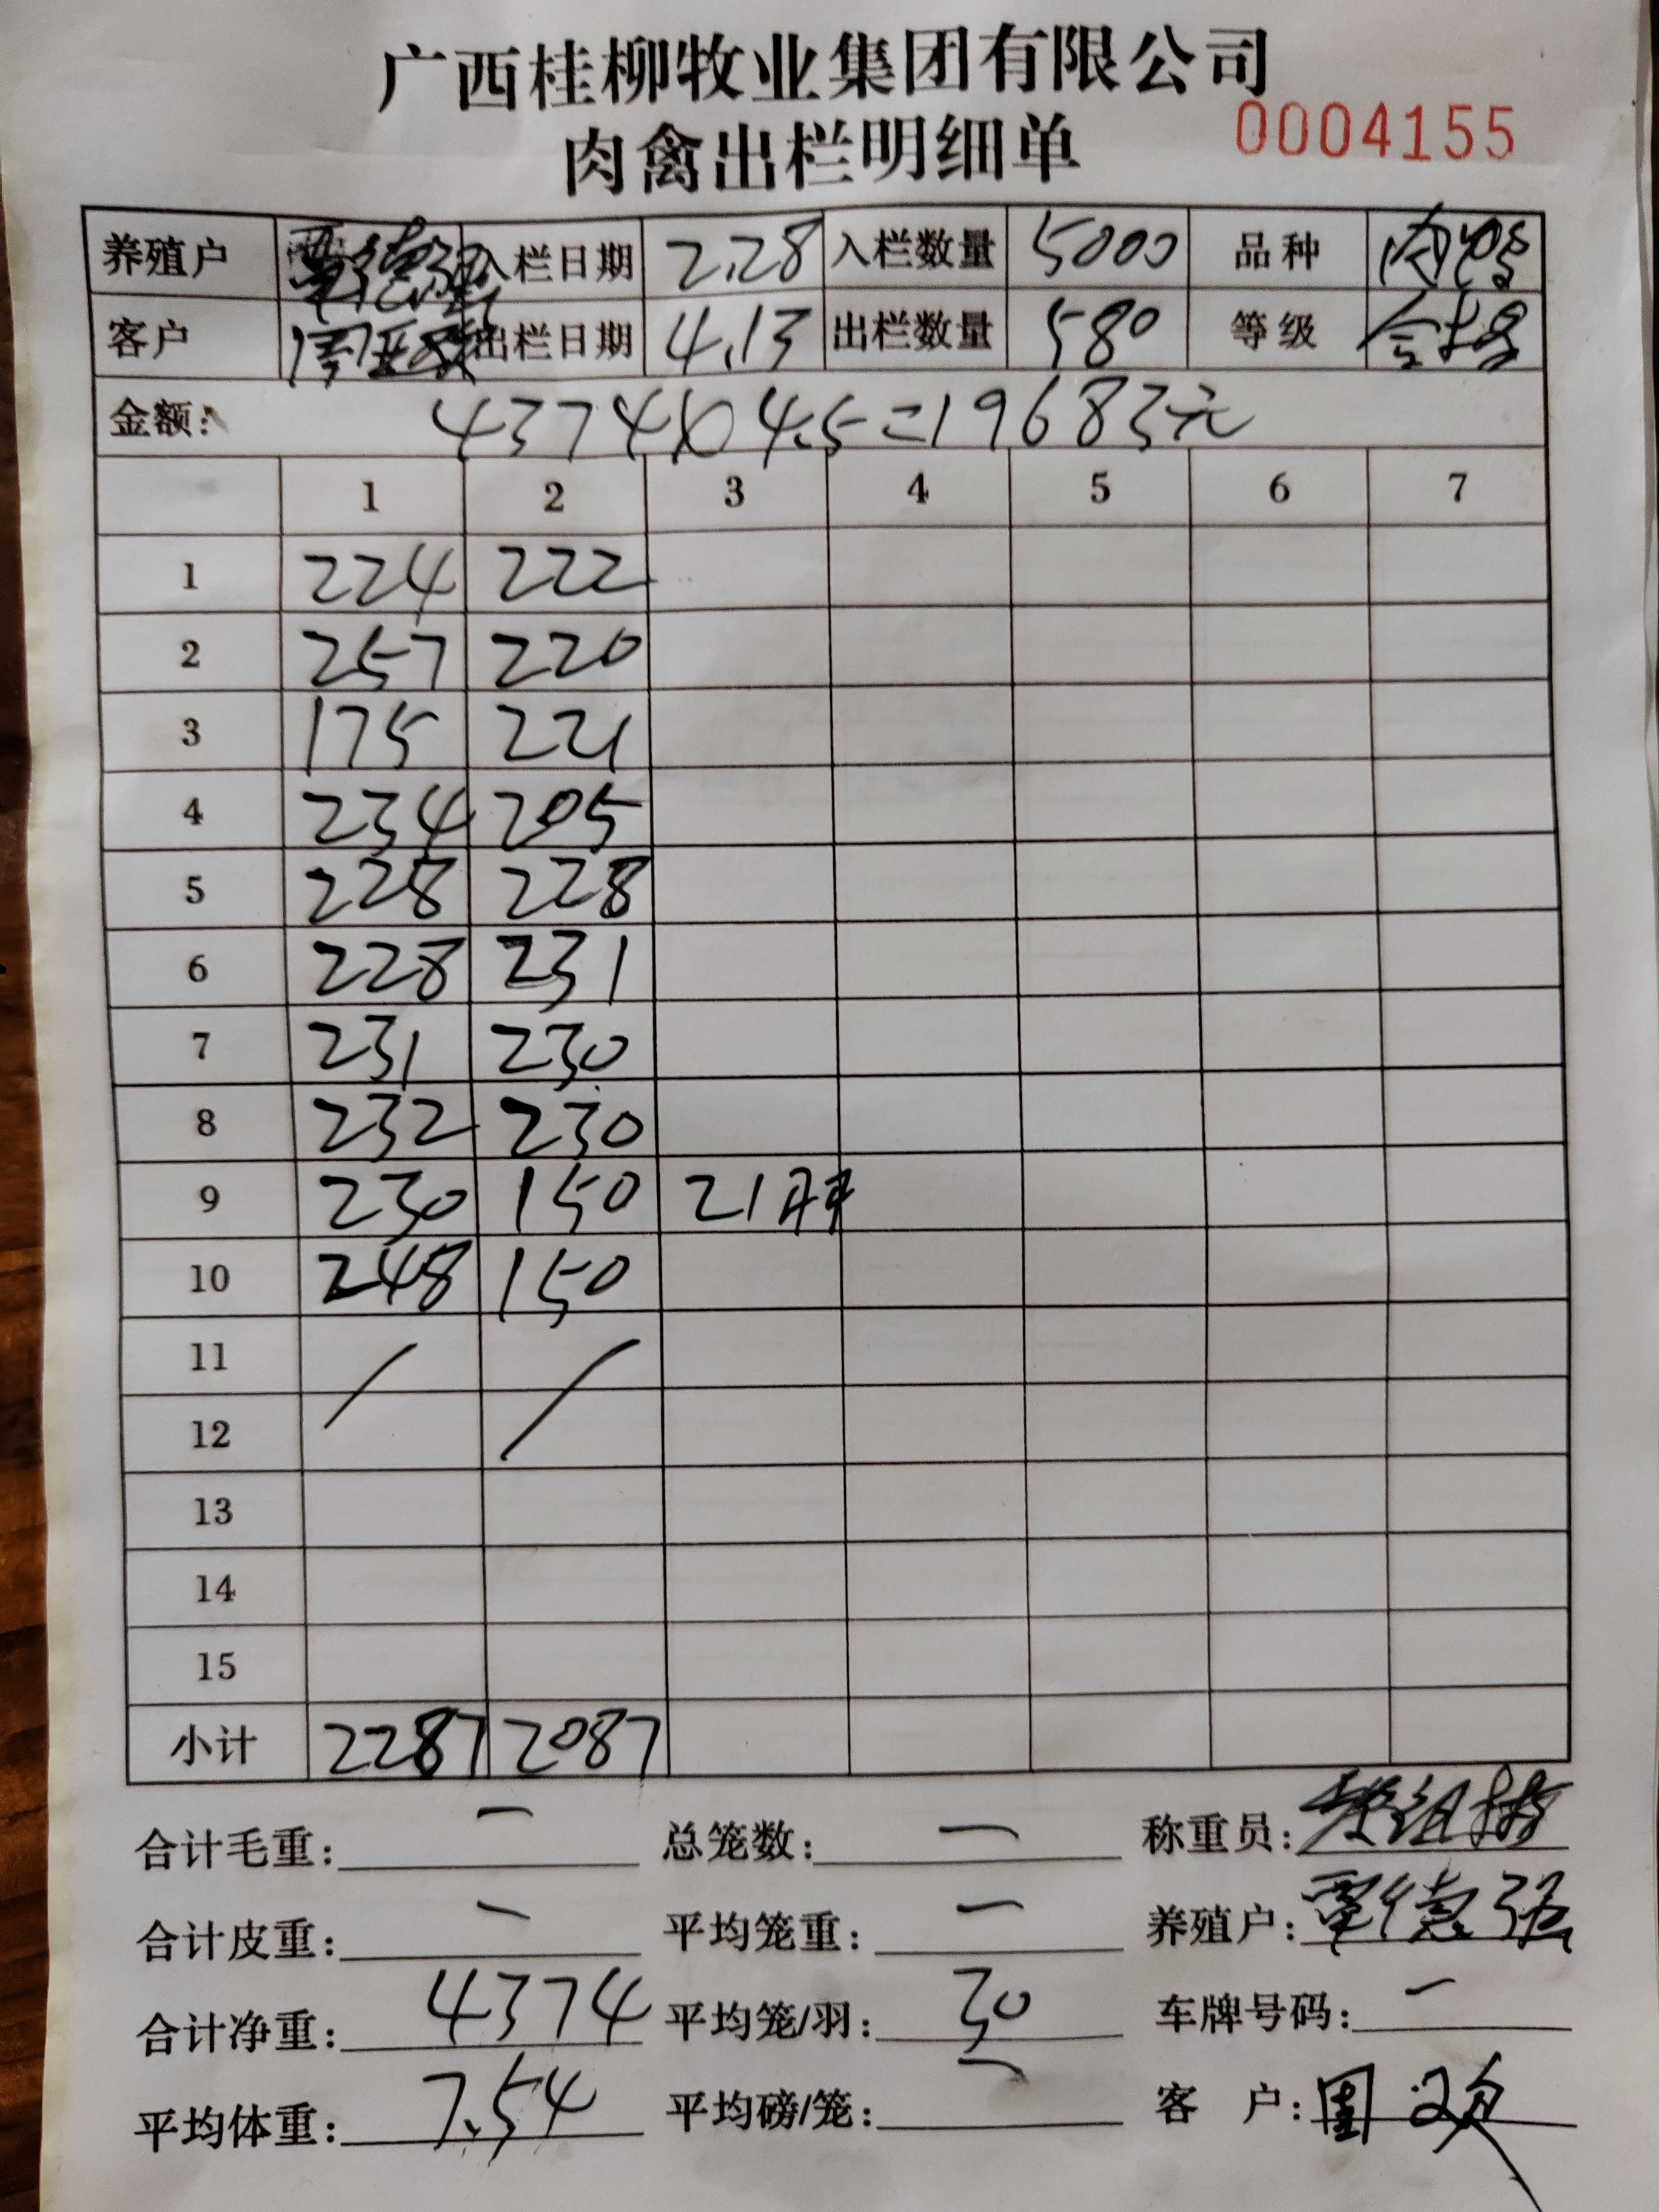 广西桂柳牧业集团有限公司
肉禽出栏明细单 0004155
养殖户 覃德强 入栏日期 2.28 入栏数量 5000 品种 肉鸭
客户 出栏日期 4.13 出栏数量 580 等级 合格
金额: 4374×4.5=19683元
1 2 3 4 5 6 7
1 224 222
2 257 220
3 175 221
4 234 205
5 228 228
6 228 231
7 231 230
8 232 230
9 230 150 21羽
10 248 150
11
12
13
14
15
小计 2287 2087
合计毛重: 一 总笼数: 一 称重员:
合计皮重: 一 平均笼重: 一 养殖户: 覃德强
合计净重: 4374 平均笼/羽: 30 车牌号码: 一
平均体重: 7.54 平均磅/笼: 一 客 户: